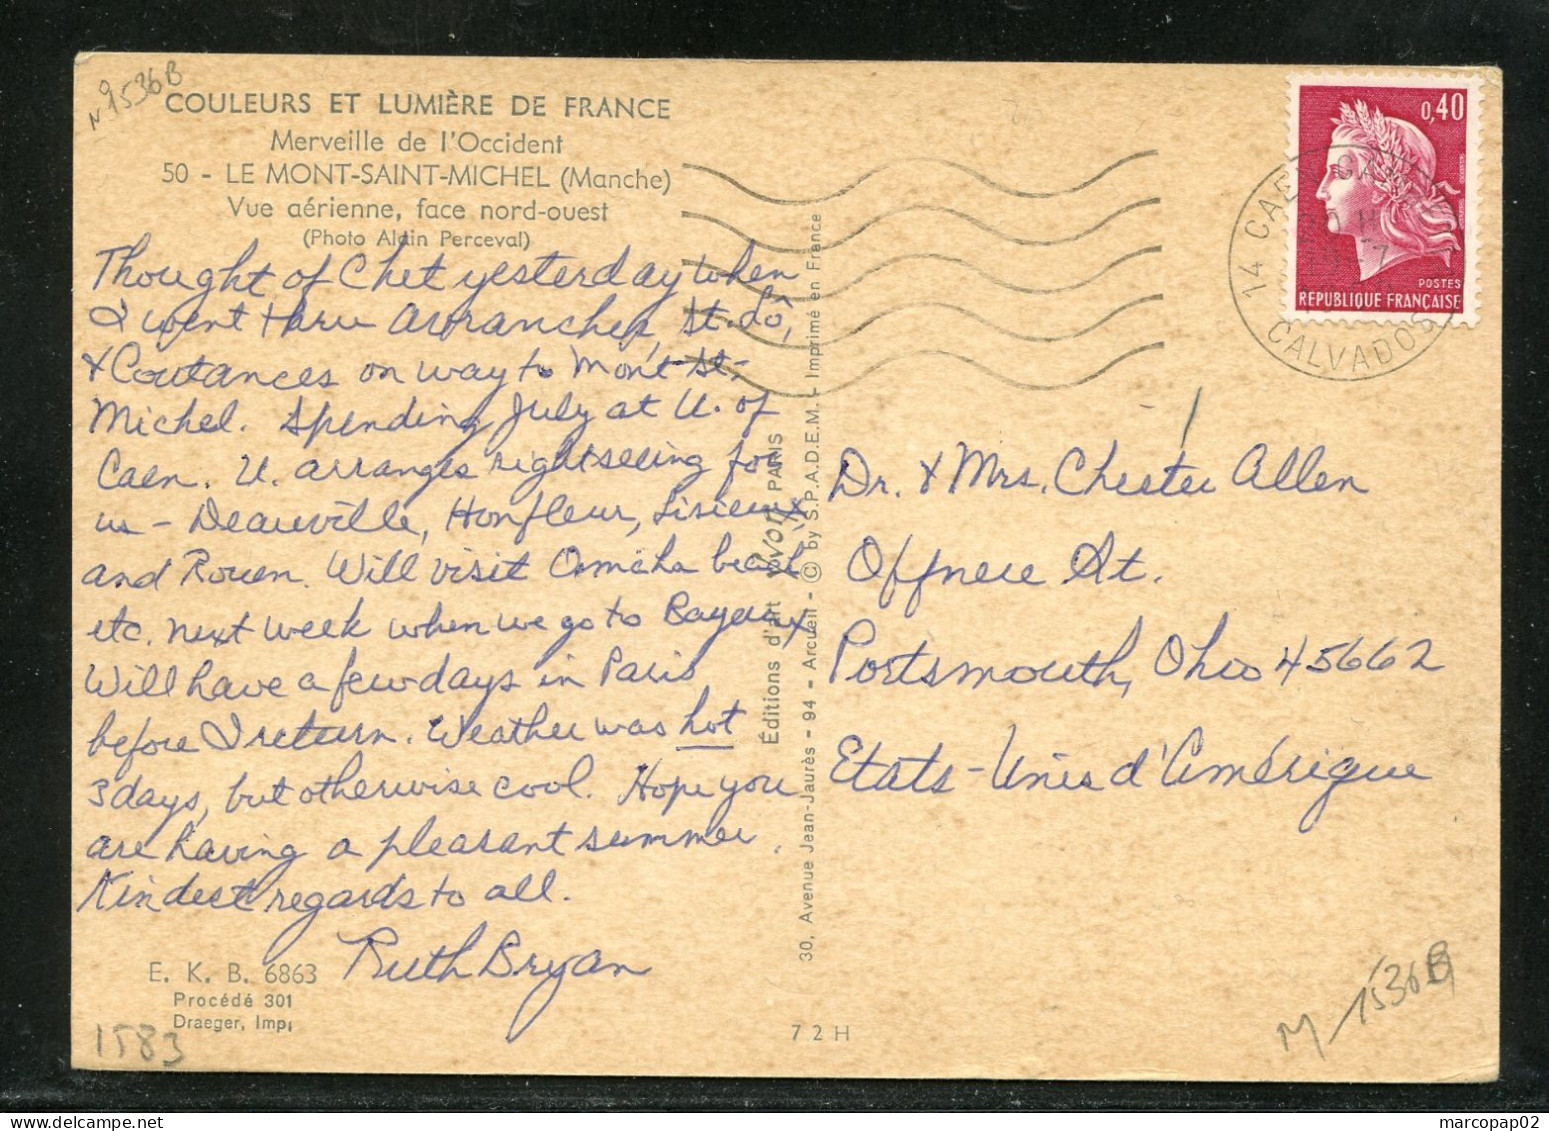 N° 1536B
COULEURS ET LUMIÈRE DE FRANCE
Merveille de l'Occident
50 - LE MONT-SAINT-MICHEL (Manche)
Vue aérienne, face nord-ouest
(Photo Alain Perceval)
Thought of Chet yesterday when
I went thru Avranches, St. Lô,
& Coutances on way to Mont-St-
Michel. Spending July at U. of
Caen. U. arranges sightseeing for
us - Deauville, Honfleur, Lisieux
and Rouen. Will visit Omaha beach
etc. next week when we go to Bayeux
Will have a few days in Paris
before I return. Weather was hot
3 days, but otherwise cool. Hope you
are having a pleasant summer.
Kindest regards to all.
Ruth Bryan
E. K. B. 6863
Procédé 301
Draeger, Imp.
1583
Éditions d'art YVON PARIS
30, Avenue Jean-Jaurès - 94 - Arcueil - © by S.P.A.D.E.M. - Imprimé en France
72H
0,40
POSTES
RÉPUBLIQUE FRANÇAISE
14 CAEN
CALVADOS
Dr. & Mrs. Chester Allen
Offnere St.
Portsmouth, Ohio 45662
Etats-Unis d'Amérique
M-1536B
marcopap02